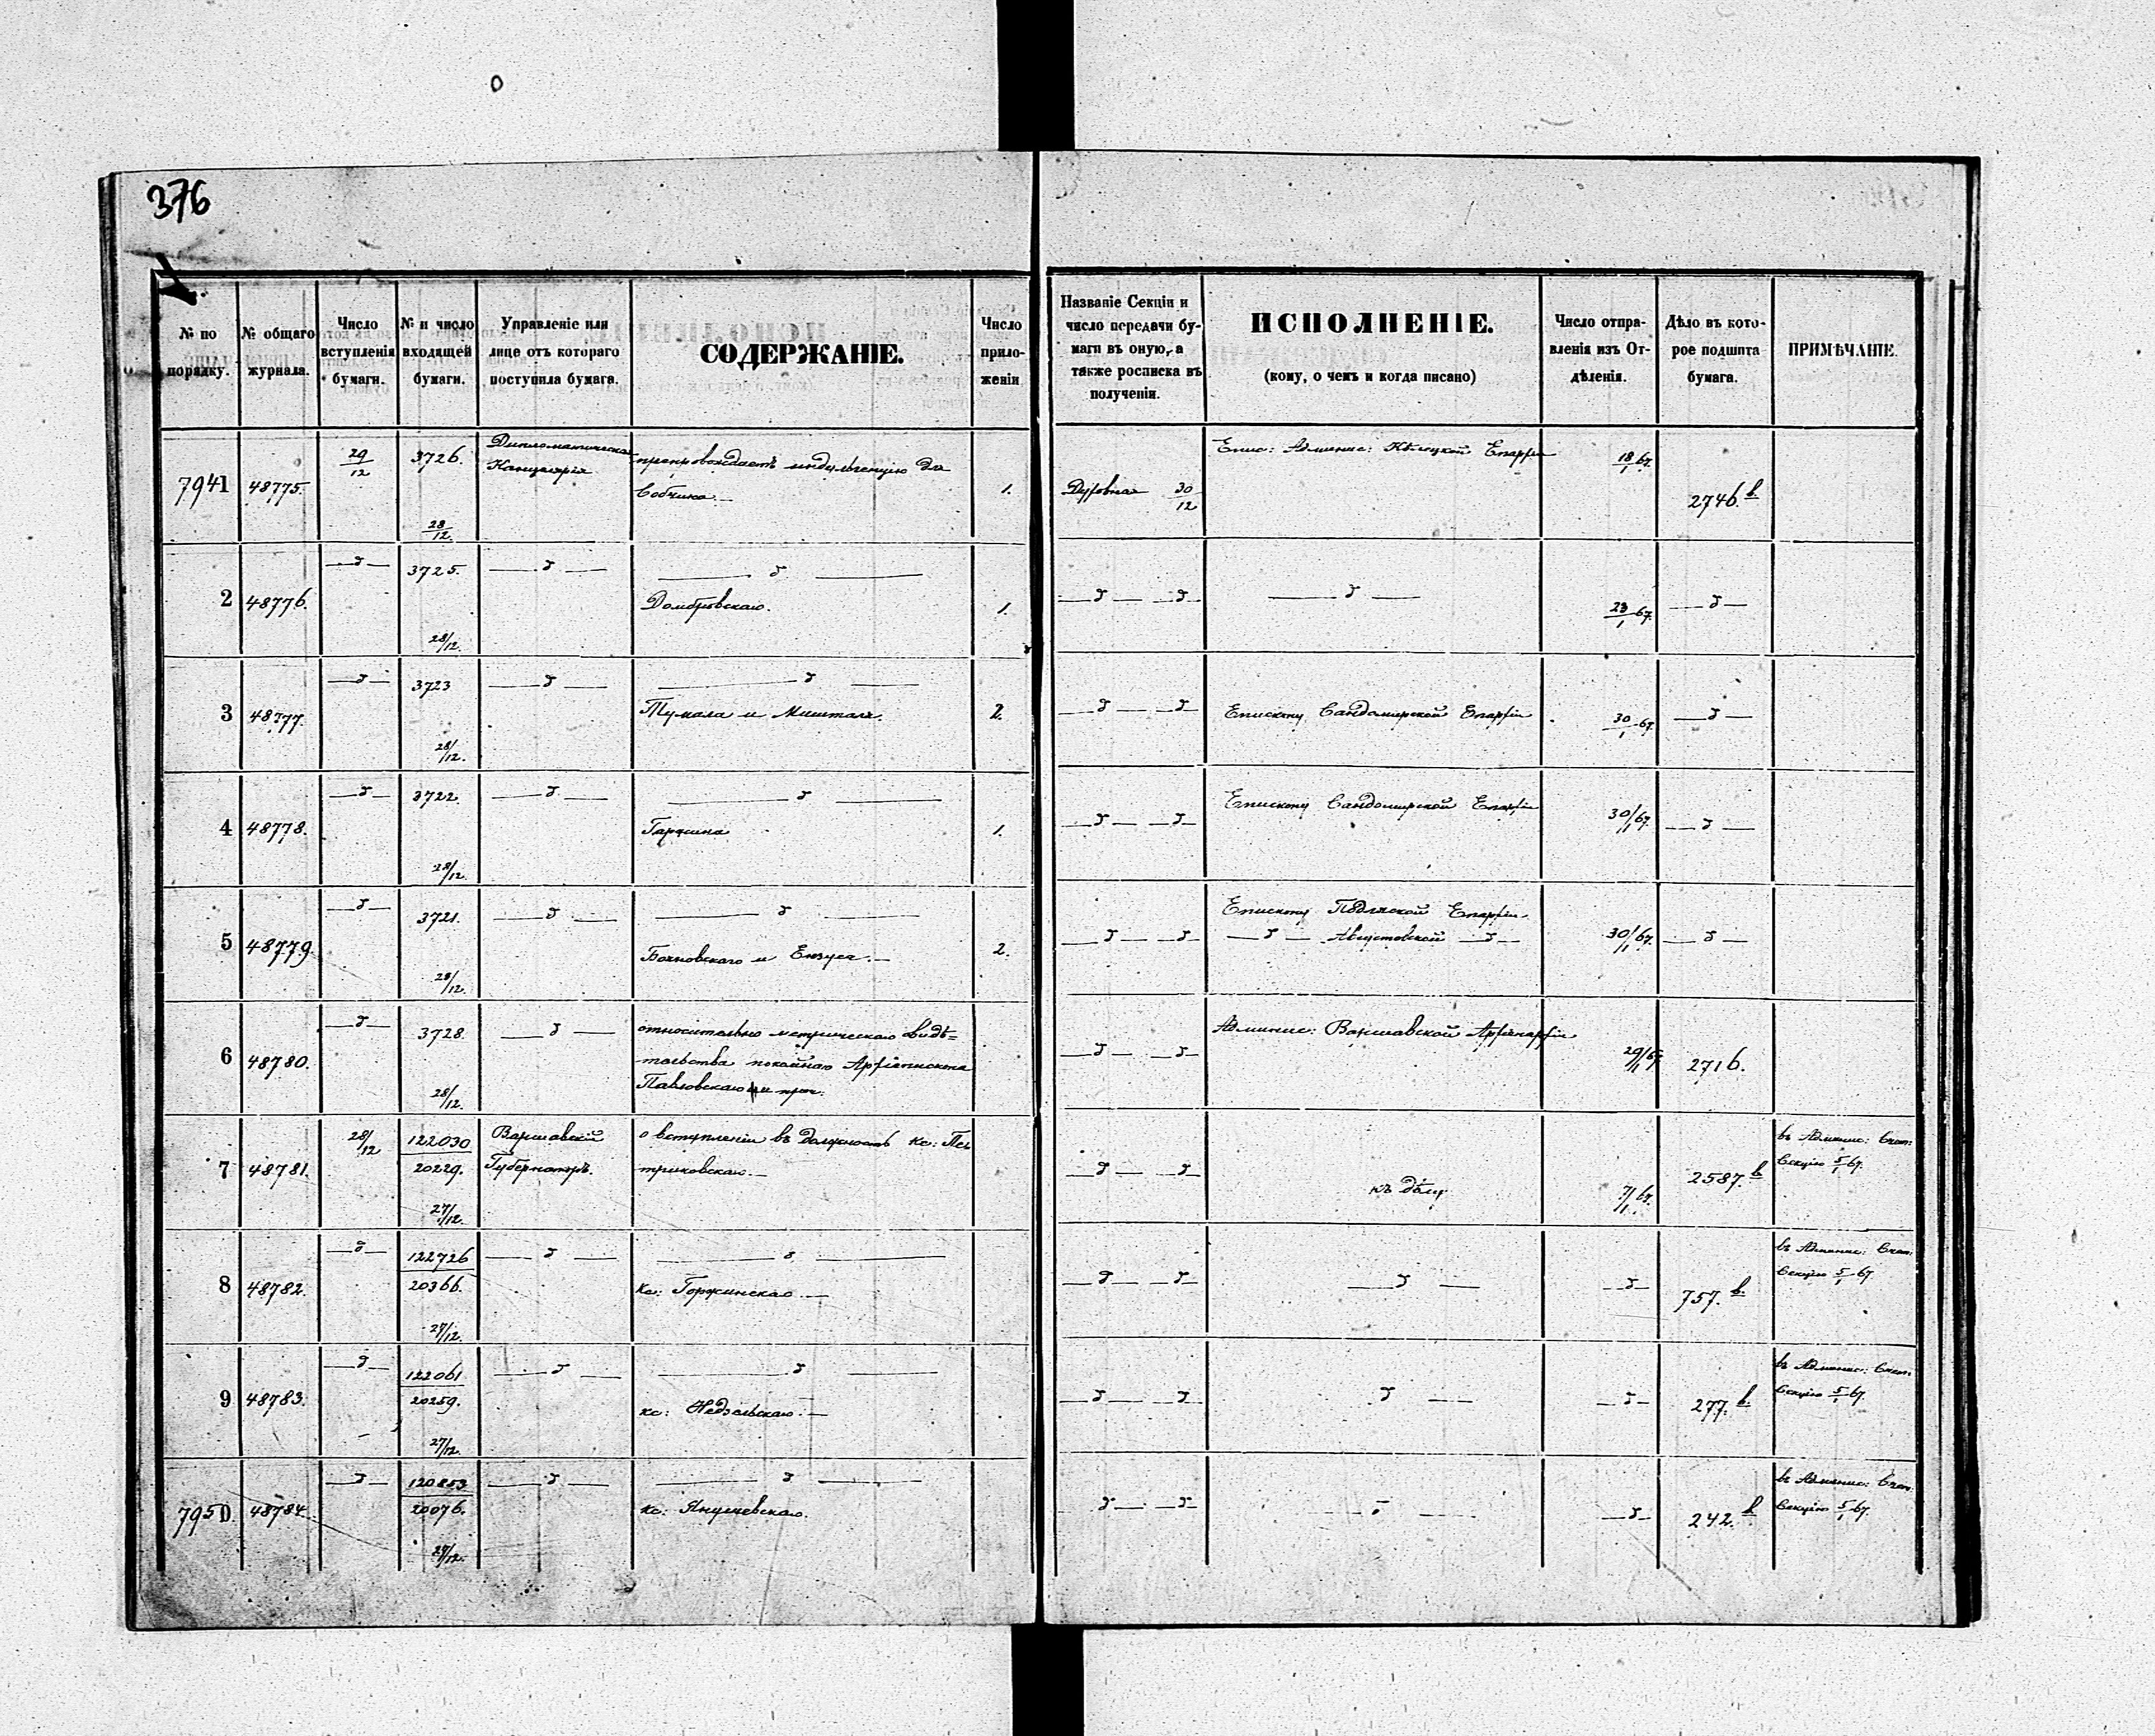 376
№ по порядку.
№ общаго журнала.
Число вступленія бумаги.
№ и число входящей бумаги.
Управленіе или лице отъ котораго поступила бумага.
СОДЕРЖАНІЕ.
Число приложеній
Названіе Секціи и число передачи бумаги въ оную, а также росписка въ полученіи.
ИСПОЛНЕНІЕ.
(кому, о чемъ и когда писано)
Число отправленія изъ Отдѣленія.
Дѣло въ которое подшита бумага.
ПРИМѢЧАНІЕ.
7941 48775. 29/12 3726. 28/12. Дипломатическая Канцелярія
препровождаетъ индульгенцію для
Собчика. 1. Духовная 30/12 Епис: Админис: Кѣлецкой Епархіи 18/1 67. 2746.в.
2 48776. —д— 3725. 28/12. —д— —д—
Домбровскаго. 1. —д— —д— —д— 23/1 67. —д—
3 48777. —д— 3723 28/12. —д— —д—
Тумала и Мишталь. 2. —д— —д— Епископу Сандомирской Епархіи 30/1 67. —д—
4 48778. —д— 3722. 28/12. —д— —д—
1. —д— —д— Епископу Сандомирской Епархіи 30/1 67. —д—
5 48779. —д— 3721. 28/12. —д— —д—
2. —д— —д— Епископу Подляской Епархіи
—д— Августовской —д— 30/1 67. —д—
6 48780. —д— 3728. 28/12. —д— относительно метрическаго свидѣ=
тельства покойнаго Архіепископа
Павловскаго и проч. —д— —д— Админис: Варшавской Архіепархіи 29/1 67. 2716.
7 48781. 28/12 122030 20229. 27/12. Варшавскій Губернаторъ.
о вступленіи въ должность кс: Пе
триковскаго. —д— —д— къ дѣлу 7/1 67. 2587.в въ Админис: Счет:
Секцію 5/1 67.
8 48782. —д— 122726 20366. 27/12. —д— —д—
кс: Горжинскаго. —д— —д— —д— —д— 757.в. въ Админис: Счет:
Секцію 5/1 67
9 48783. —д— 122061 20259. 27/12. —д— —д—
кс: Недзельскаго. —д— —д— —д— —д— 277.в. въ Админис: Счет:
Секцію 5/1 67.
7950. 48784. —д— 120853 20076. 27/12. —д— —д—
кс: Янушевскаго. —д— —д— —д— —д— 242.в въ Админис: Счет:
Секцію 5/1 67.